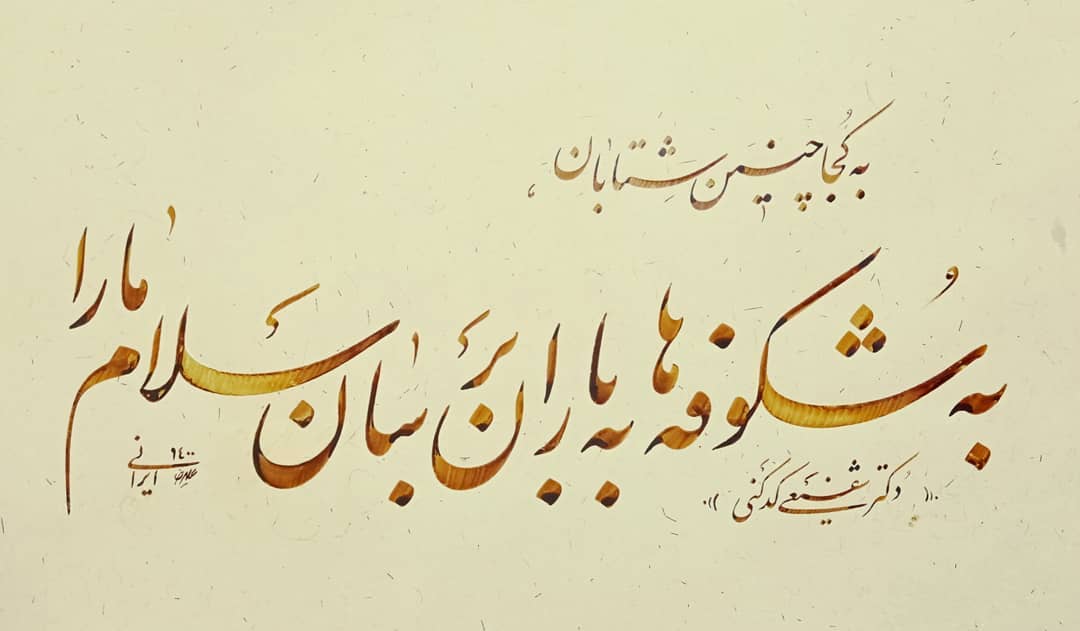 به کجا چنین شتابان
به شکوفه‌ها به باران برسان سلام ما را
دکتر شفیعی کدکنی
علیرضا ۱۴۰۰
ایرانی